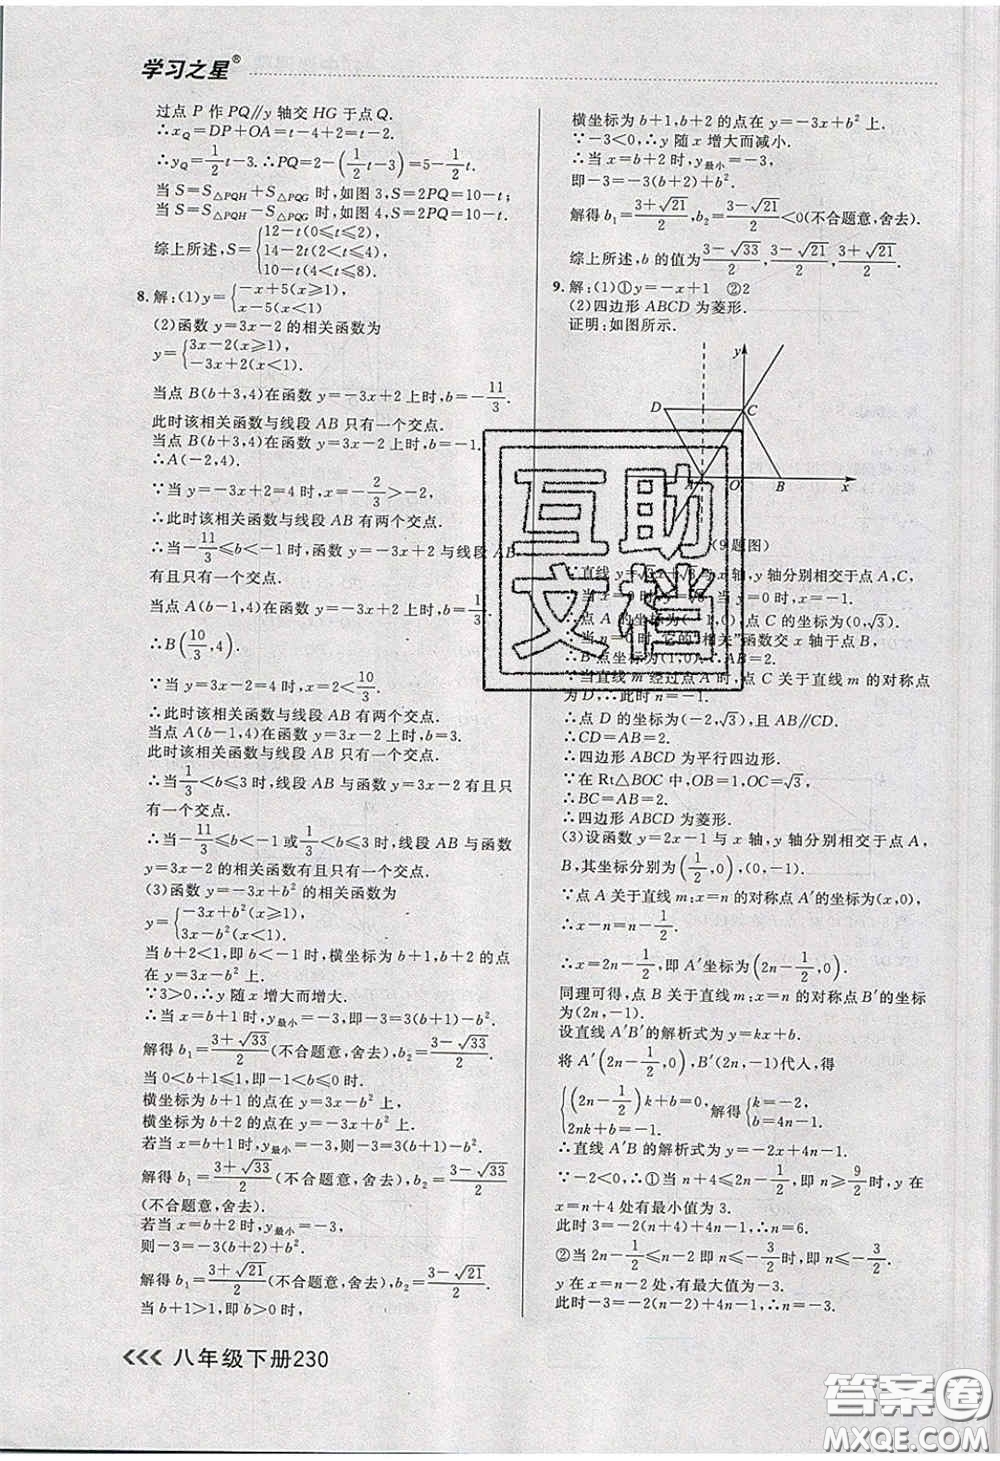 学习之星®
过点 P 作 PQ∥y 轴交 HG 于点 Q.
∴x_Q=DP+OA=t-4+2=t-2.
∴y_Q=1/2t-3.∴PQ=2-(1/2t-3)=5-1/2t.
当 S=S△PQH+S△PQG 时,如图 3,S=2PQ=10-t;
当 S=S△PQH-S△PQG 时,如图 4,S=2PQ=10-t.
综上所述,S={12-t(0⩽t⩽2), 14-2t(2<t⩽4), 10-t(4<t⩽8).
8.解:(1)y={-x+5(x⩾1), x-5(x<1)
(2)函数 y=3x-2 的相关函数为
y={3x-2(x⩾1), -3x+2(x<1).
当点 B(b+3,4)在函数 y=-3x+2 上时,b=-11/3.
此时该相关函数与线段 AB 只有一个交点.
当点 B(b+3,4)在函数 y=3x-2 上时,b=-1.
∴A(-2,4).
∵当 y=-3x+2=4 时,x=-2/3>-2,
∴此时该相关函数与线段 AB 有两个交点.
∴当-11/3⩽b<-1 时,函数 y=-3x+2 与线段 AB
有且只有一个交点.
当点 A(b-1,4)在函数 y=-3x+2 上时,b=1/3.
∴B(10/3,4).
∵当 y=3x-2=4 时,x=2<10/3.
∴此时该相关函数与线段 AB 有两个交点.
当点 A(b-1,4)在函数 y=3x-2 上时,b=3.
此时该相关函数与线段 AB 只有一个交点.
∴当 1/3<b⩽3 时,线段 AB 与函数 y=3x-2 有且只
有一个交点.
∴当-11/3⩽b<-1 或 1/3<b⩽3 时,线段 AB 与函数
y=3x-2 的相关函数有且只有一个交点.
(3)函数 y=-3x+b² 的相关函数为
y={-3x+b²(x⩾1), 3x-b²(x<1).
当 b+2<1,即 b<-1 时,横坐标为 b+1,b+2 的点
在 y=3x-b² 上.
∵3>0,∴y 随 x 增大而增大.
∴当 x=b+1 时,y最小=-3,即-3=3(b+1)-b².
解得 b₁=(3+√33)/2(不合题意,舍去),b₂=(3-√33)/2.
当 0<b+1⩽1,即-1<b⩽0 时,
横坐标为 b+1 的点在 y=3x-b² 上,
横坐标为 b+2 的点在 y=-3x+b² 上.
若当 x=b+1 时,y最小=-3,则-3=3(b+1)-b².
解得 b₁=(3+√33)/2(不合题意,舍去),b₂=(3-√33)/2
(不合题意,舍去).
若当 x=b+2 时,y最小=-3,
则-3=-3(b+2)+b².
解得 b₁=(3+√21)/2(不合题意,舍去),b₂=(3-√21)/2.
当 b+1>1,即 b>0 时,
横坐标为 b+1,b+2 的点在 y=-3x+b² 上.
∵-3<0,∴y 随 x 增大而减小.
∴当 x=b+2 时,y最小=-3,
即-3=-3(b+2)+b².
解得 b₁=(3+√21)/2,b₂=(3-√21)/2<0(不合题意,舍去).
综上所述,b 的值为(3-√33)/2,(3-√21)/2,(3+√21)/2.
9.解:(1)①y=-x+1 ②2
(2)四边形 ABCD 为菱形.
证明:如图所示.
y
D C
A O B x
(9题图)
∵直线 y=√3x+√3 与 x 轴,y 轴分别相交于点 A,C,
当 x=0 时,x=-1.
∴点 A 的坐标为(-1,0),点 C 的坐标为(0,√3).
∵当 n=0 时,它的“相关”函数交 x 轴于点 B,
∴B 点坐标为(1,0).∴AB=2.
∵当直线 m 经过点 A 时,点 C 关于直线 m 的对称点
为 D,∴此时 n=-1.
∴点 D 的坐标为(-2,√3),且 AB∥CD.
∴CD=AB=2.
∴四边形 ABCD 为平行四边形.
∵在 Rt△BOC 中,OB=1,OC=√3,
∴BC=AB=2.
∴四边形 ABCD 为菱形.
(3)设函数 y=2x-1 与 x 轴,y 轴分别相交于点 A,
B,其坐标分别为(1/2,0),(0,-1).
∵点 A 关于直线 m:x=n 的对称点 A′的坐标为(x,0),
∴x-n=n-1/2.
∴x=2n-1/2,即 A′坐标为(2n-1/2,0).
同理可得,点 B 关于直线 m:x=n 的对称点 B′的坐标
为(2n,-1).
设直线 A′B′的解析式为 y=kx+b.
将 A′(2n-1/2,0),B′(2n,-1)代人,得
{(2n-1/2)k+b=0, 2nk+b=-1. 解得{k=-2, b=4n-1.
∴直线 A′B′的解析式为 y=-2x+4n-1.
∵-2<0,∴①当 n+4⩽2n-1/2,即 n⩾9/2时,y 在
x=n+4 处有最小值为 3.
此时 3=-2(n+4)+4n-1,∴n=6.
②当 2n-1/2⩽n-2 即 n⩽-3/2时,即 n⩽-3/2时,
y 在 x=n-2 处,有最大值为-3.
此时-3=-2(n-2)+4n-1,∴n=-3.
八年级下册230
互助
文档
答案圈
MXQE.COM